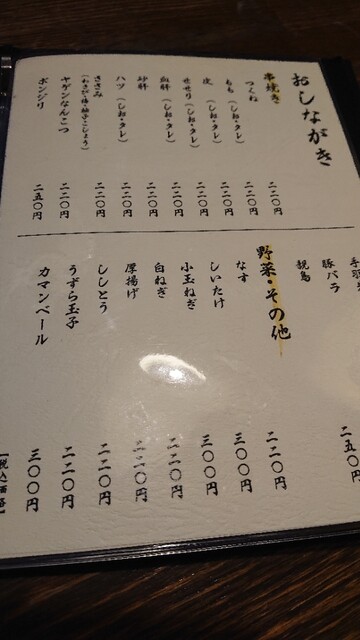 おしながき
串焼き
つくね 二二〇円
もも(しお・タレ) 二二〇円
皮(しお・タレ) 二二〇円
せせり(しお・タレ) 二二〇円
血肝(しお・タレ) 二二〇円
砂肝 二二〇円
ハツ(しお・タレ) 二二〇円
ささみ
(わさび・梅・柚子こしょう) 二二〇円
ヤゲンなんこつ 二二〇円
ボンジリ 二五〇円
手羽
豚バラ
親鳥
二五〇円
野菜・その他
なす 二二〇円
しいたけ 三〇〇円
小玉ねぎ 三〇〇円
白ねぎ 二二〇円
厚揚げ 二二〇円
ししとう 二二〇円
うずら玉子 二二〇円
カマンベール 三〇〇円
【税込価格】